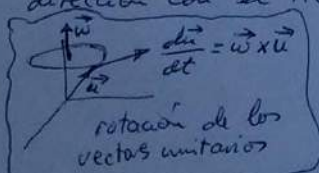 dirección con el
ω⃗
du⃗/dt = ω⃗ x u⃗
u⃗
rotación de los
vectores unitarios